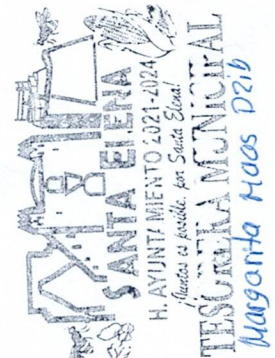 SANTA ELENA
H. AYUNTAMIENTO 2021-2024
¡Juntos es posible por Santa Elena!
TESORERA MUNICIPAL
Margarita Haas Dzib